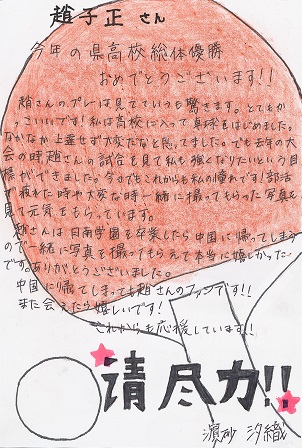 趙子正さん
今年の県高校総体優勝
おめでとうございます!!
趙さんのプレーは見ていつも驚きます。とてもか
っこいいです!私は高校に入って卓球をはじめました。
なかなか上達せず大変だなと思ってました。でも去年の大
会の時趙さんの試合を見て私も強くなりたいという目
標ができました。今までもこれからも私の憧れです!部活
で疲れた時や大変な時一緒に撮ってもらった写真を
見て元気をもらっています。
趙さんは日南学園を卒業したら中国に帰ってしまう
ので一緒に写真を撮ってもらえて本当に嬉しかった
です。ありがとうございました。
中国に帰ってしまっても趙さんのファンです!!
また会えたら嬉しいです!
これからも応援しています!!
请尽力!!
濵砂 汐織